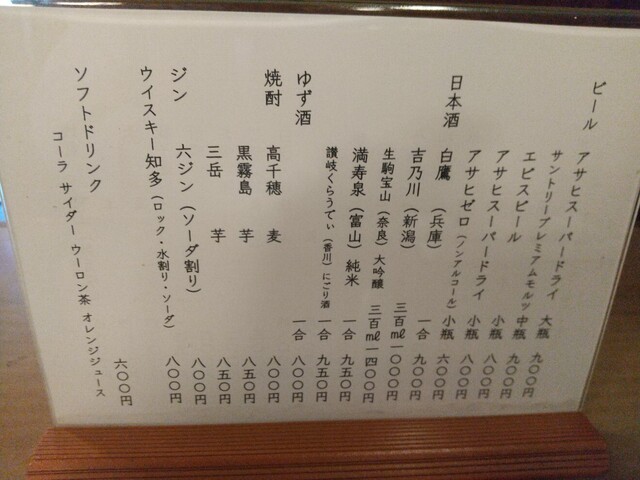 ビール アサヒスーパードライ 大瓶 九〇〇円
サントリープレミアムモルツ 中瓶 九〇〇円
エビスビール 小瓶 八〇〇円
アサヒスーパードライ 小瓶 八〇〇円
アサヒゼロ(ノンアルコール) 小瓶 六〇〇円
日本酒 白鷹 (兵庫) 一合 九〇〇円
吉乃川 (新潟) 三百㎖ 一〇〇〇円
生駒宝山 (奈良) 大吟醸 三百㎖ 一四〇〇円
満寿泉 (富山) 純米 一合 九五〇円
讃岐くらうでぃ (香川) にごり酒 一合 九五〇円
ゆず酒 一合 八〇〇円
焼酎 高千穂 麦 八〇〇円
黒霧島 芋 八五〇円
三岳 芋 八五〇円
ジン 六ジン (ソーダ割り) 八〇〇円
ウイスキー知多 (ロック・水割り・ソーダ) 八〇〇円
ソフトドリンク 六〇〇円
コーラ サイダー ウーロン茶 オレンジジュース